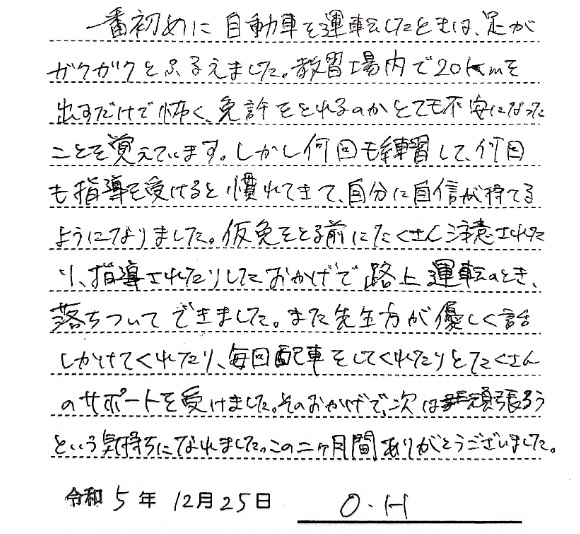 一番初めに自動車を運転したときは、足が
ガクガクとふるえました。教習場内で20kmを
出すだけで怖く、免許をとれるのかとても不安になった
ことを覚えています。しかし何回も練習して、何回
も指導を受けると慣れてきて、自分に自信が持てる
ようになりました。仮免をとる前にたくさん注意された
り、指導されたりしたおかげで路上運転のとき、
落ちついてできました。また先生方が優しく話
しかけてくれたり、毎回配車をしてくれたりとたくさん
のサポートを受けました。そのおかげで、次は頑張ろう
という気持ちになれました。この二ヶ月間ありがとうございました。
令和5年12月25日 O.H